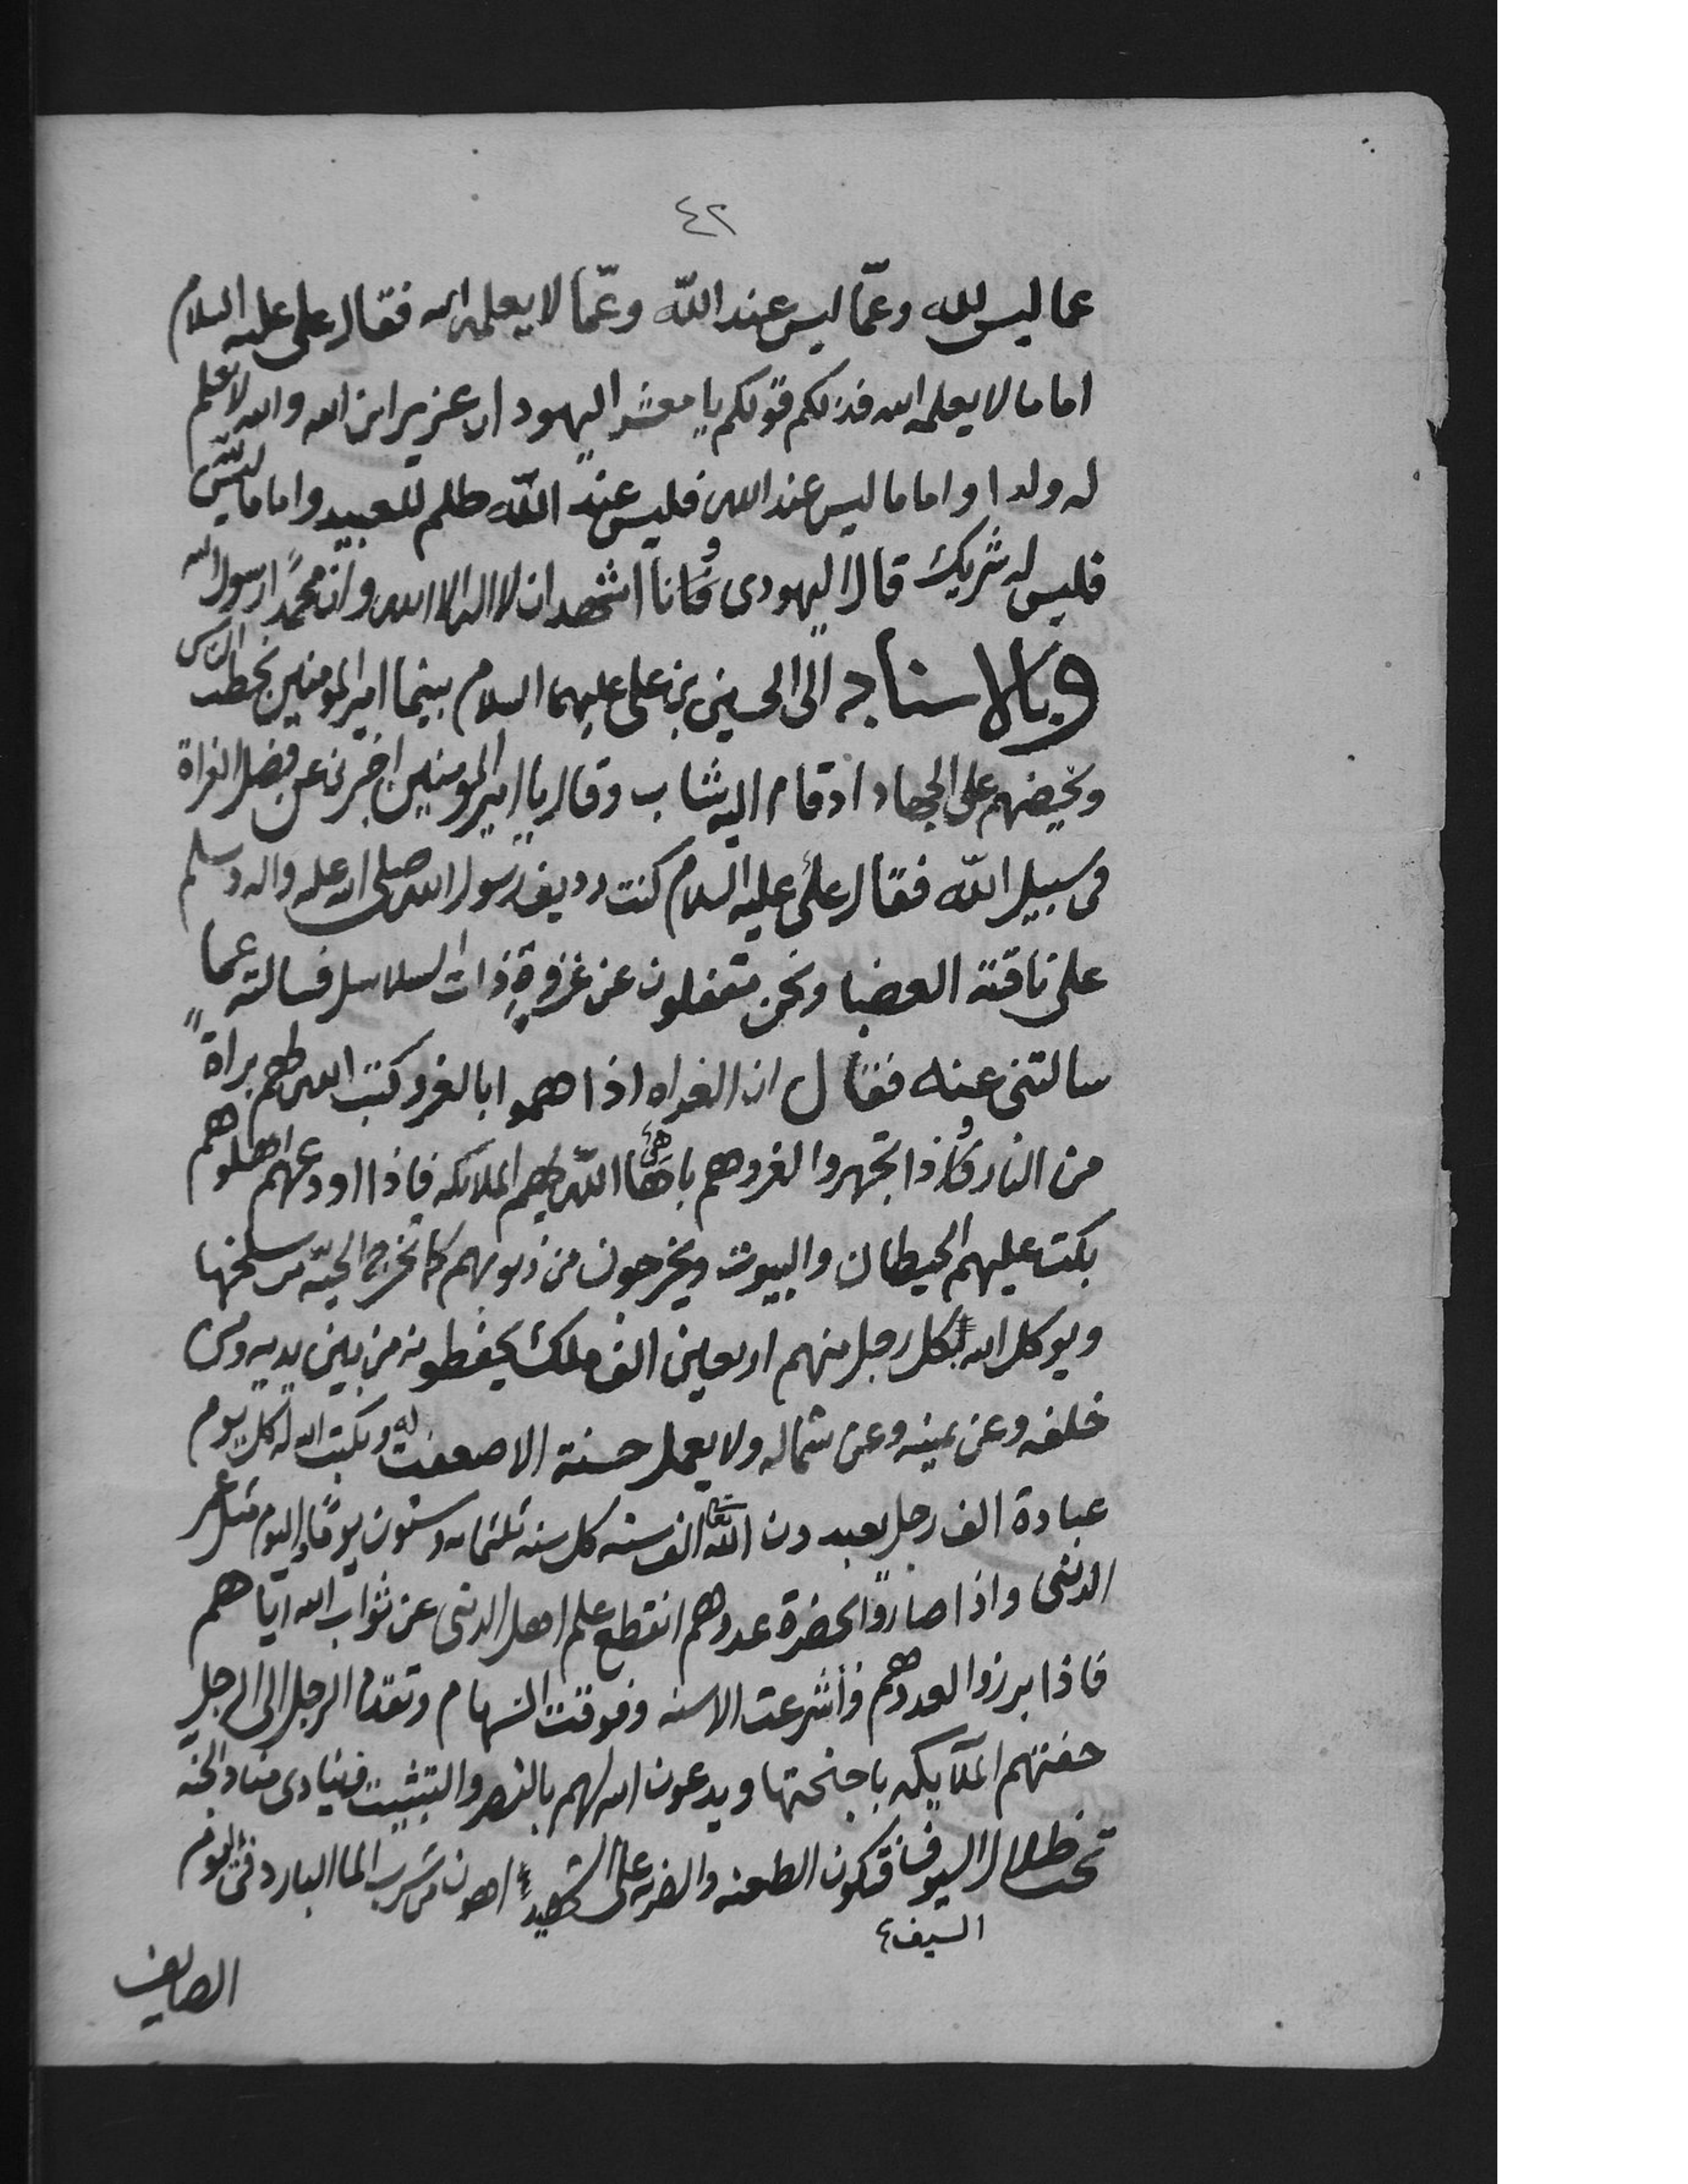 ٤٢
عما ليس لله وعمّا ليس عند الله وعمّا لا يعلمه الله فقال على عليه السلام
اما ما لا يعلمه الله فذلكم قولكم يا معشر اليهود ان عزير ابن الله والله لا يعلم
له ولدا واما ما ليس عند الله فليس عند الله ظلم للعبيد واما ما ليس لله
فليس له شريك قال اليهودى وانا اشهد ان لا اله الا الله وان محمدًا رسول الله
وبالاسناد الى الحسين بن على عليهما السلام بينما امير المومنين يخطب الناس
ويحضهم على الجهاد اذ قام اليه شاب وقال يا امير المومنين اخبرنى عن فضل الغزاة
فى سبيل الله فقال علىّ عليه السلام كنت رديف رسول الله صلى الله عليه واله وسلم
على ناقته العضبا ونحن مقفلون عن غزوة ذات السلاسل فسالته عما
سالتنى عنه فقال ان الغزاه اذا هموا بالغزو كتب الله لهم براة
من النار واذا تجهزوا لغزوهم باها الله بهم الملائكه فاذا اودعهم اهلوهم
بكت عليهم الحيطان والبيوت ويخرجون من ذنوبهم كما تخرج الحيّة من سلخها
ويوكل الله بكل رجل منهم اربعين الف ملك يحفظونه من بين يديه ومن
خلفه وعن يمينه وعن شماله ولا يعمل حسنة الا ضعفت له ويكتب الله له كل يوم
عبادة الف رجل يعبدون الله الف سنه كل سنه ثلثمايه وستون يومًا واليوم مثل عمر
الدنيى واذا صاروا بحضرة عدوهم انقطع علم اهل الدنيى عن ثواب الله اياهم
فاذا برزوا لعدوهم وأشرعت الاسنه وفوقت السهام وتقدم الرجل الى الرجل
حفتهم الملآيكه باجنحتها ويدعون الله لهم بالنصر والتثبيت فينادى مناد الجنه
تحت ظلال السيوف فتكون الطعنه والضربه على الشهيد اهون من شرب الما البارد فى اليوم
السيف
الصايف